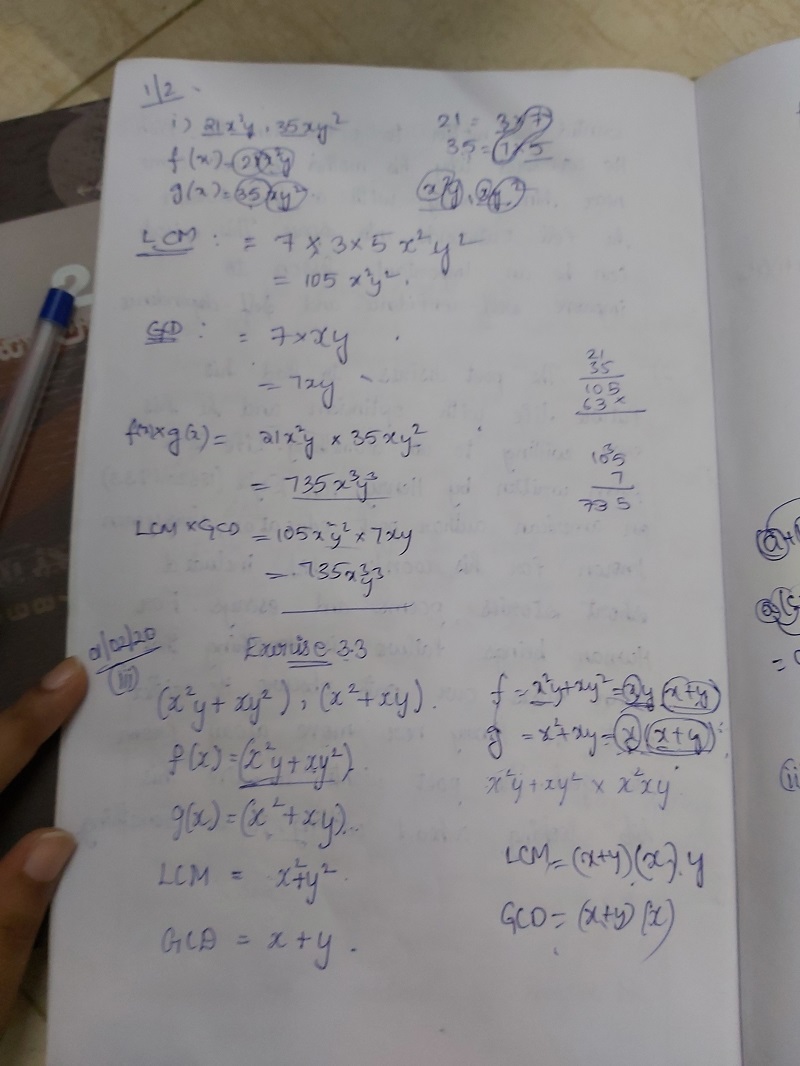 1/2
i) 21x²y, 35xy²
21 = 3×7
f(x) = 21x²y
35 = 7×5
g(x) = 35xy²
x²y, xy²
LCM : = 7 × 3 × 5 x²y²
= 105 x²y².
GCD : = 7 × xy
= 7xy
21
35
105
63×
f(x) × g(x) = 21x²y × 35xy²
= 735x³y³
105
7
735
LCM × GCD = 105x²y² × 7xy
= 735x³y³
Exercise 3.3
(iii)
(x²y + xy²), (x² + xy).
f(x) = (x²y + xy²)
g(x) = (x² + xy).
LCM = x²+y².
GCD = x + y.
f = x²y+xy² = xy (x+y)
g = x²+xy = x (x+y)
x²y + xy² × x²xy
LCM = (x+y)(x).y
GCD = (x+y)(x)